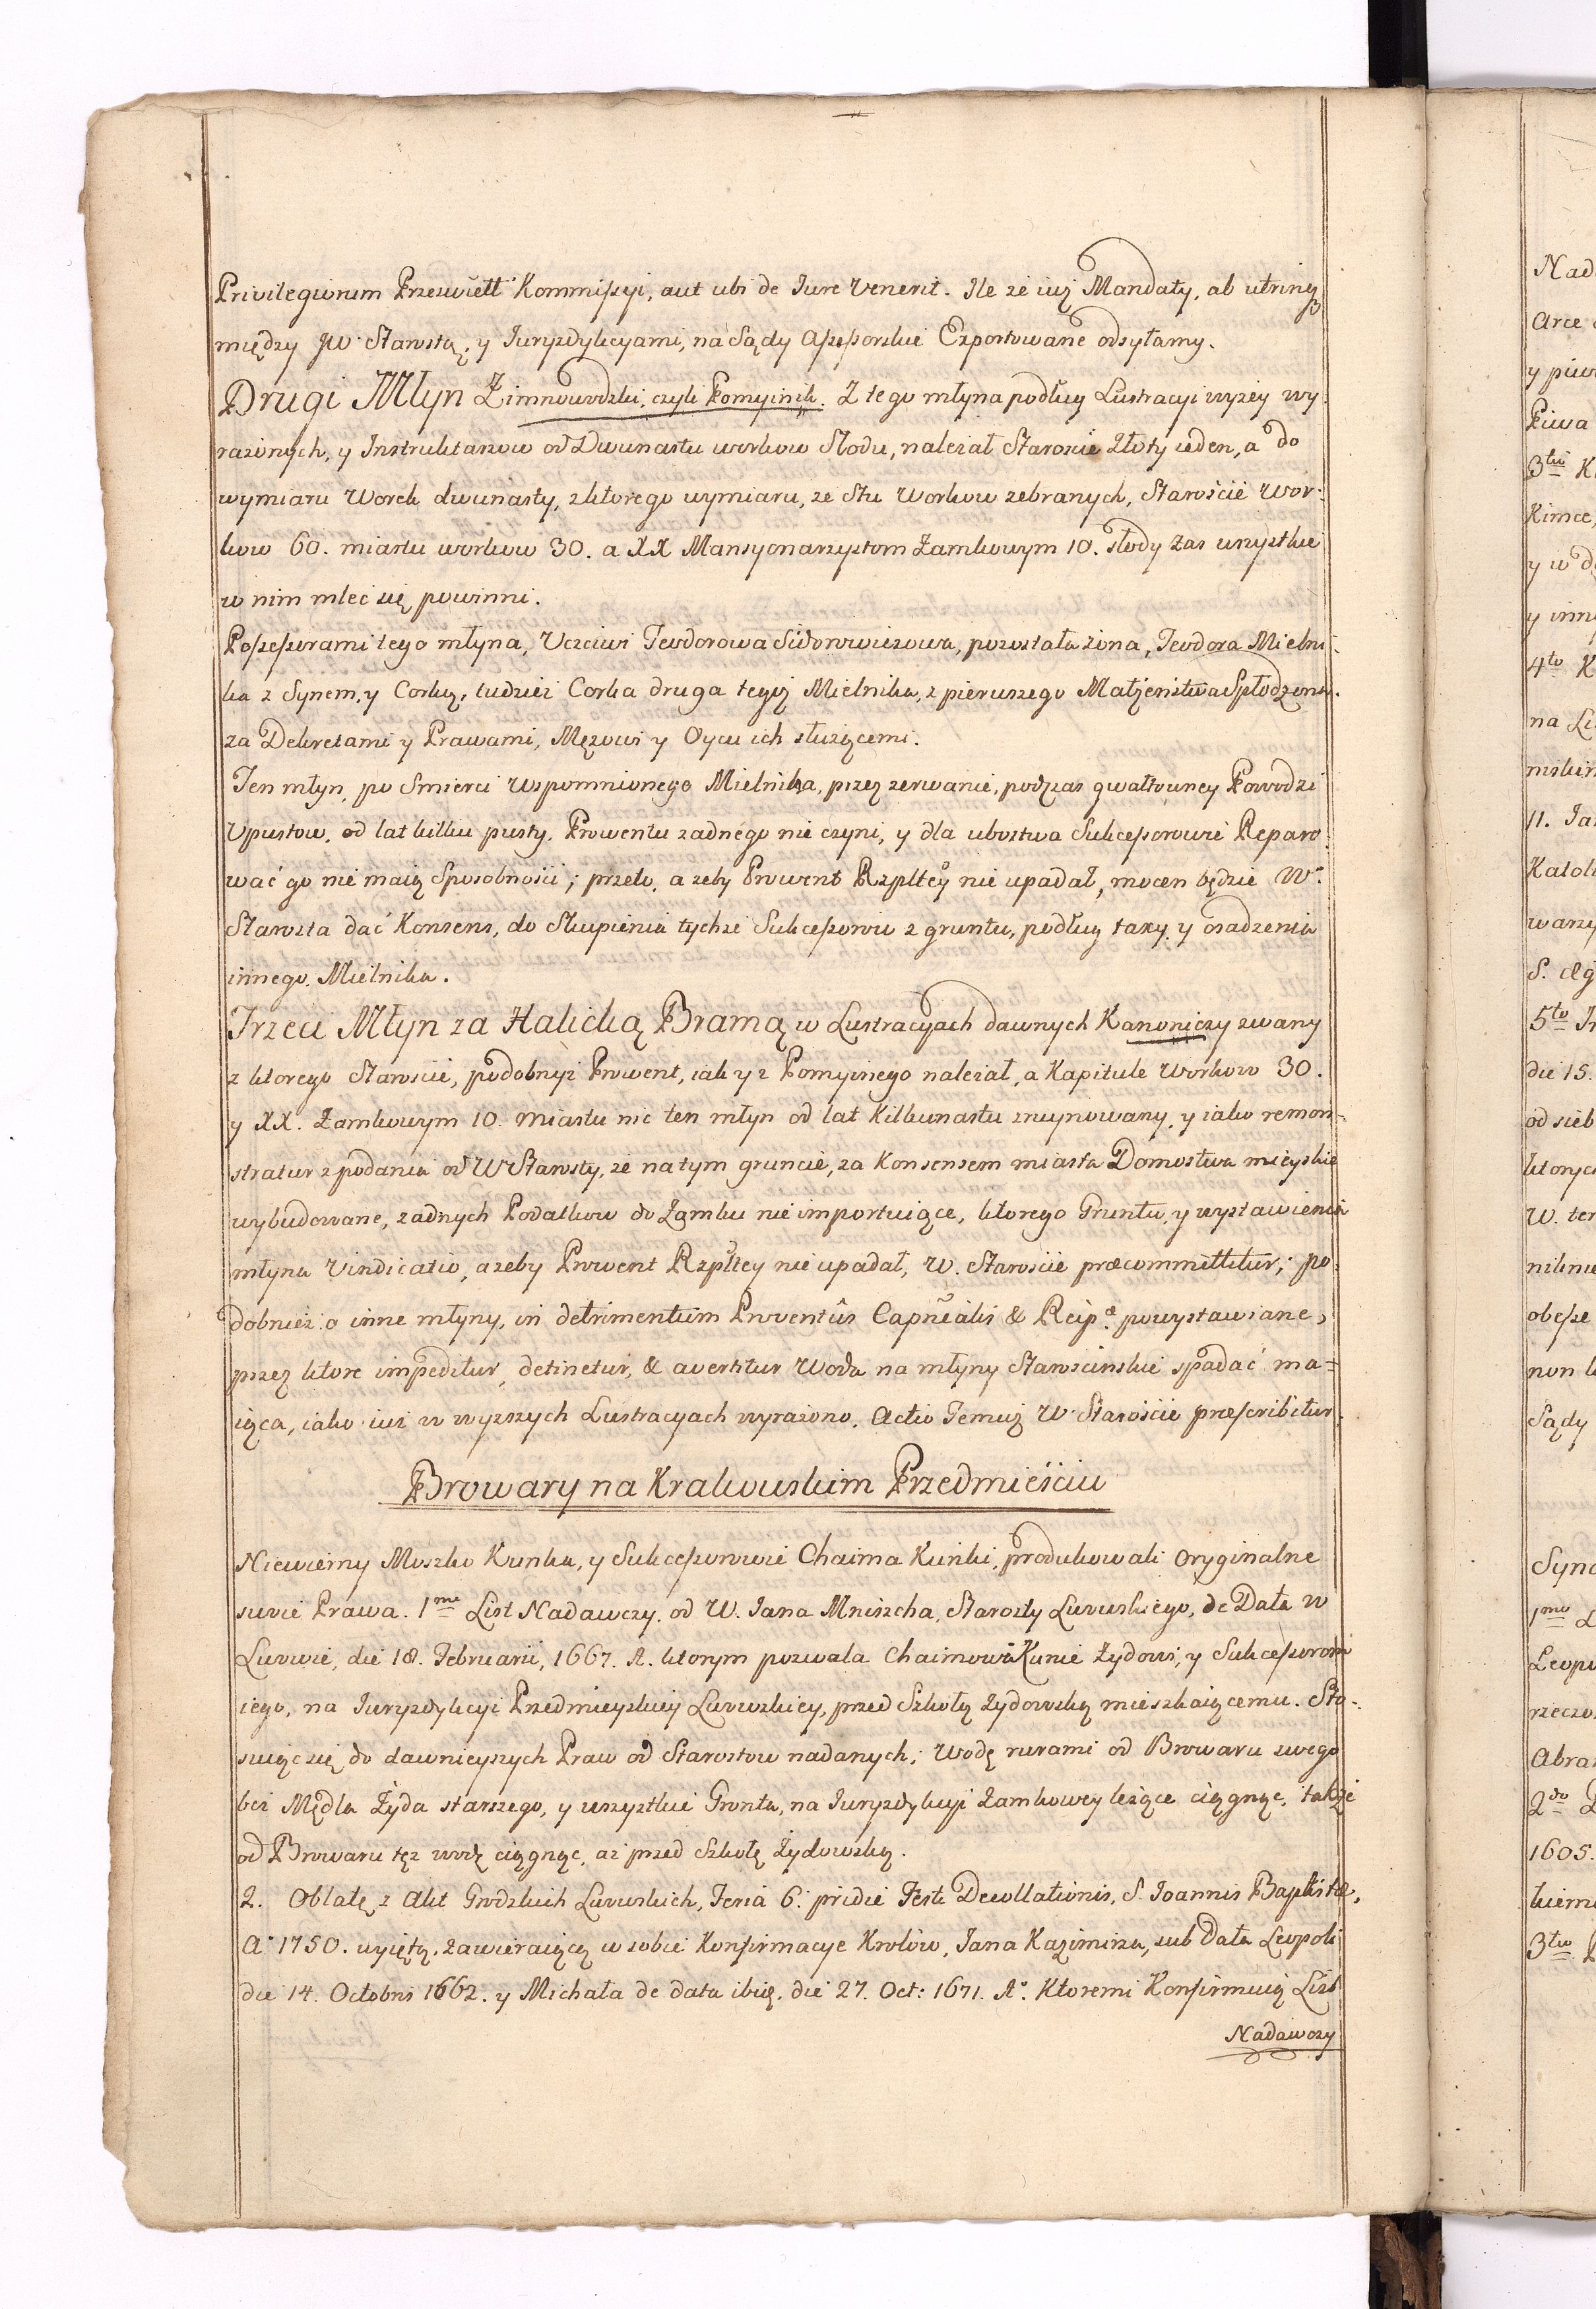 Privilegiorum Przeswiett Kommissyi, aut ubi de Iure venerit. Ile ze iuż Mandaty, ab utrinq
między JW Starostą, y Iuryzdykcyami, na Sądy Assessorskie Exportowane odsyłamy.
Drugi Młyn Zimnowodzki, czyli Pomyinik. Z tego młyna podług Lustracyi wyzey wy-
razonych, y Instruktarzow od Dwunastu workow Słodu, nalezał Staroscie Złoty ieden, a do
wymiaru Worek dwunasty, z ktorego wymiaru, ze Stu Workow zebranych, Starościе Wor-
kow 60. miastu workow 30. a XX Mansyonarzystom Zamkowym 10. słody zas wszystkie
w nim mleć się powinni.
Possessorami tego młyna, Uczciwi Teodorowa Sidorowiczowa, pozostała zona, Teodora Mielni-
ka z Synem, y Corką, tudziez Corka druga tegoż Mielnika, z pierwszego Małżeństwa Spłodzona.
za Dekretami y Prawami, Męzowi y Oycu ich służącemi.
Ten młyn, po Smierci Wspomnionego Mielnika, przez zerwanie, podczas gwałtowney Powodzi
Upustow, od lat kilku pusty, Prowentu zadnego nie czyni, y dla ubostwa Sukcessorowie Reparo-
wać go nie maią Sposobności; przeto, a zeby Prowent Rzpltey nie upadał, mocen będzie W.
Starosta dać Konsens, do Skupienia tychze Sukcessorow z gruntu, podług taxy y osadzenia
innego Mielnika.
Trzeci Młyn za Halicką Bramą w Lustracyach dawnych Kanoniczy zwany
z ktorego Staroscie, podobnyż Prowent, iak y z Pomyinego nalezał, a Kapitule Workow 30.
y XX. Zamkowym 10. miastu nic ten młyn od lat Kilkunastu zruynowany, y iako remon-
stratur z podania od W Starosty, ze na tym gruncie, za Konsensem miasta Domostwa mieyskie
wybudowane, zadnych Podatkow do Zamku nie importuiące, ktorego Gruntu, y wystawienia
młyna Vindicatio, azeby Prowent Rzpltey nie upadał, W. Staroscie præcommittitur; po-
dobnież o inne młyny, in detrimentum Proventûs Capnēalis & Reip: powystawiane,
przez ktore impeditur, detinetur, & avertitur Woda na młyny Starościnskie spadać ma-
iąca, iako iuż w wyzszych Lustracyach wyrazono. Actio Temuż W Starościе præscribitur.
Browary na Krakowskim Przedmieściu
Niewierny Moszko Kunka, y Sukcessorowie Chaima Kunki, produkowali Oryginalne
swoie Prawa. 1mo List Nadawczy, od W. Iana Mniszcha, Starosty Lwowskiego, de Data w
Lwowie, die 18. Februarii, 1667. A. ktorym pozwala Chaimowi Kunie Zydowi, y Sukcessorom
iego, na Iuryzdykcyi Przedmieyskiey Lwowskiey, przed Szkołą zydowską mieszkaiącemu. Sto-
suiąc się do dawnieyszych Praw od Starostow nadanych; wodę rurami od Browaru swego
bez Mędla Żyda starszego, y wszystkie Gronta, na Iuryzdykcyi Zamkowey leżące ciągnąc, także
od Browaru tęż wodę ciągnąc, aż przed Szkołę Żydowską.
2. Oblatę z Akt Grodzkich Lwowskich, Feria 6. pridie Festi Decollationis, S. Ioannis Baptistæ,
Aº 1750. wyiętą, zawieraiącą w sobie Konfirmacye Krolów, Jana Kazimirza, sub Data Leopoli
die 14. Octobris 1662. y Michała de data ibid. die 27. Oct: 1671. Aº. Ktoremi Konfirmuią List
Nadawczy